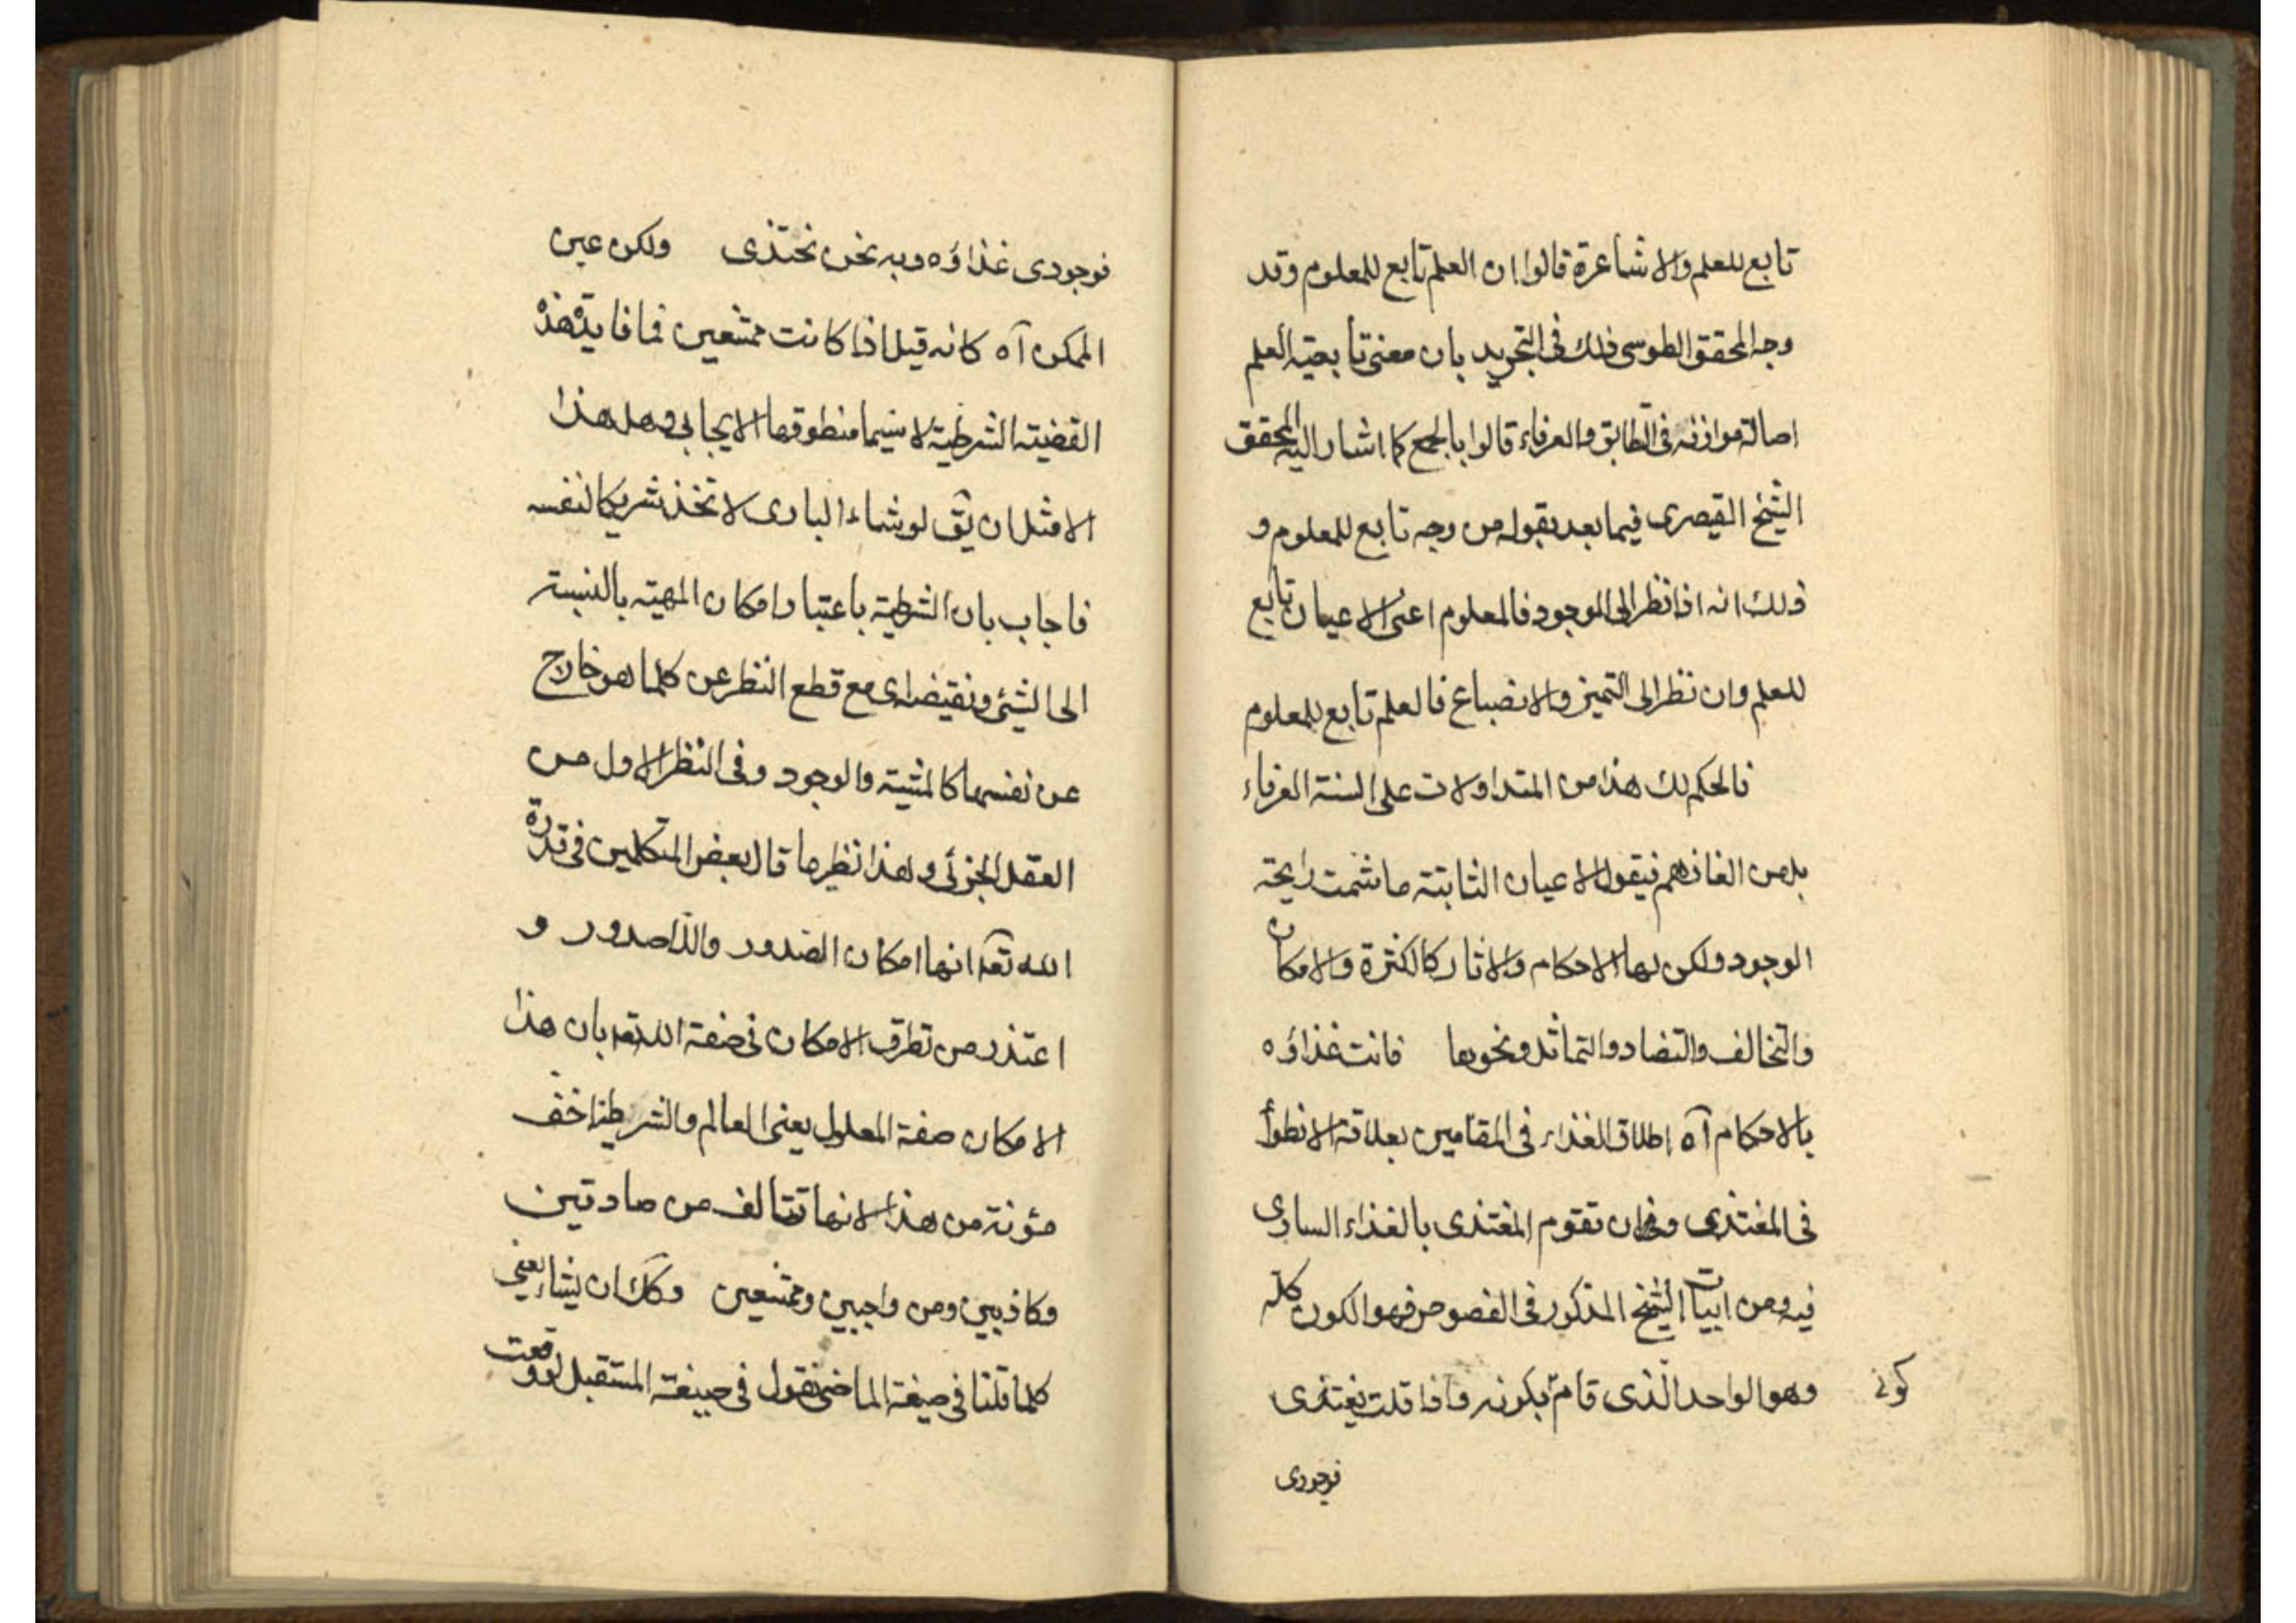 تابع للعلم والاشاعرة قالوا ان العلم تابع للمعلوم وقد
وجه المحقق الطوسى ذلك فى التجريد بان معنى تابعية العلم
اصالة موازنه فى التطابق والعرفاء قالوا بالجمع كما اشار اليه المحقق
الشيخ القيصرى فيما بعد بقوله من وجه تابع للمعلوم و
ذلك انه اذا نظر الى الوجود فالمعلوم اعنى الاعيان تابع
للعلم وان نظر الى التميز والانصباغ فالعلم تابع للمعلوم
فالحكم لك هذا من المتداولات على السنة العرفاء
بل من الغازهم فيقول الاعيان الثابتة ما شمت رايحة
الوجود ولكن لها الاحكام والاثار كالكثرة والامكان
والتخالف والتضاد والتماثل ونحوها فانت غذاؤه
بالاحكام آه اطلاق الغذاء فى المقامين بعلاقة الانطواء
فى المغتذى وفى ان تقوم المغتذى بالغذاء السارى
فيه ومن ابيات الشيخ المذكور فى الفصوص فهو الكون كله
وهو الواحد الذى قام بكونه واذا قلت يغتذى
كونى
فوجودى
فوجودى غذاؤه وبه نحن نحتذى ولكن عين
الممكن آه كانه قيل اذا كانت ممتنعين فما فايدة هذه
القضية الشرطية لاسيما منطوقها الايجابى وهل هذا
الا مثل ان يق لو شاء البارى لاتخذ شريكا لنفسه
فاجاب بان الشرطية باعتبار امكان المهية بالنسبة
الى الشئ ونقيضه اى مع قطع النظر عن كلما هو خارج
عن نفسها كالمشية والوجود وفى النظر الاول من
العقل الجزئى وهذا نظير ما قال بعض المتكلمين فى قدرة
الله تعه انها امكان الصدور واللاصدور و
اعتذر من تطرق الامكان فى صفة الله تعه بان هذا
الامكان صفة المعلول يعنى العالم والشرطية اخف
مؤنة من هذا لانها تتالف من صادقين
وكاذبين ومن واجبين وممتنعين وكك ان يشاء يعنى
كلما قلنا فى صيغة الماضى نقول فى صيغة المستقبل لو وقعت